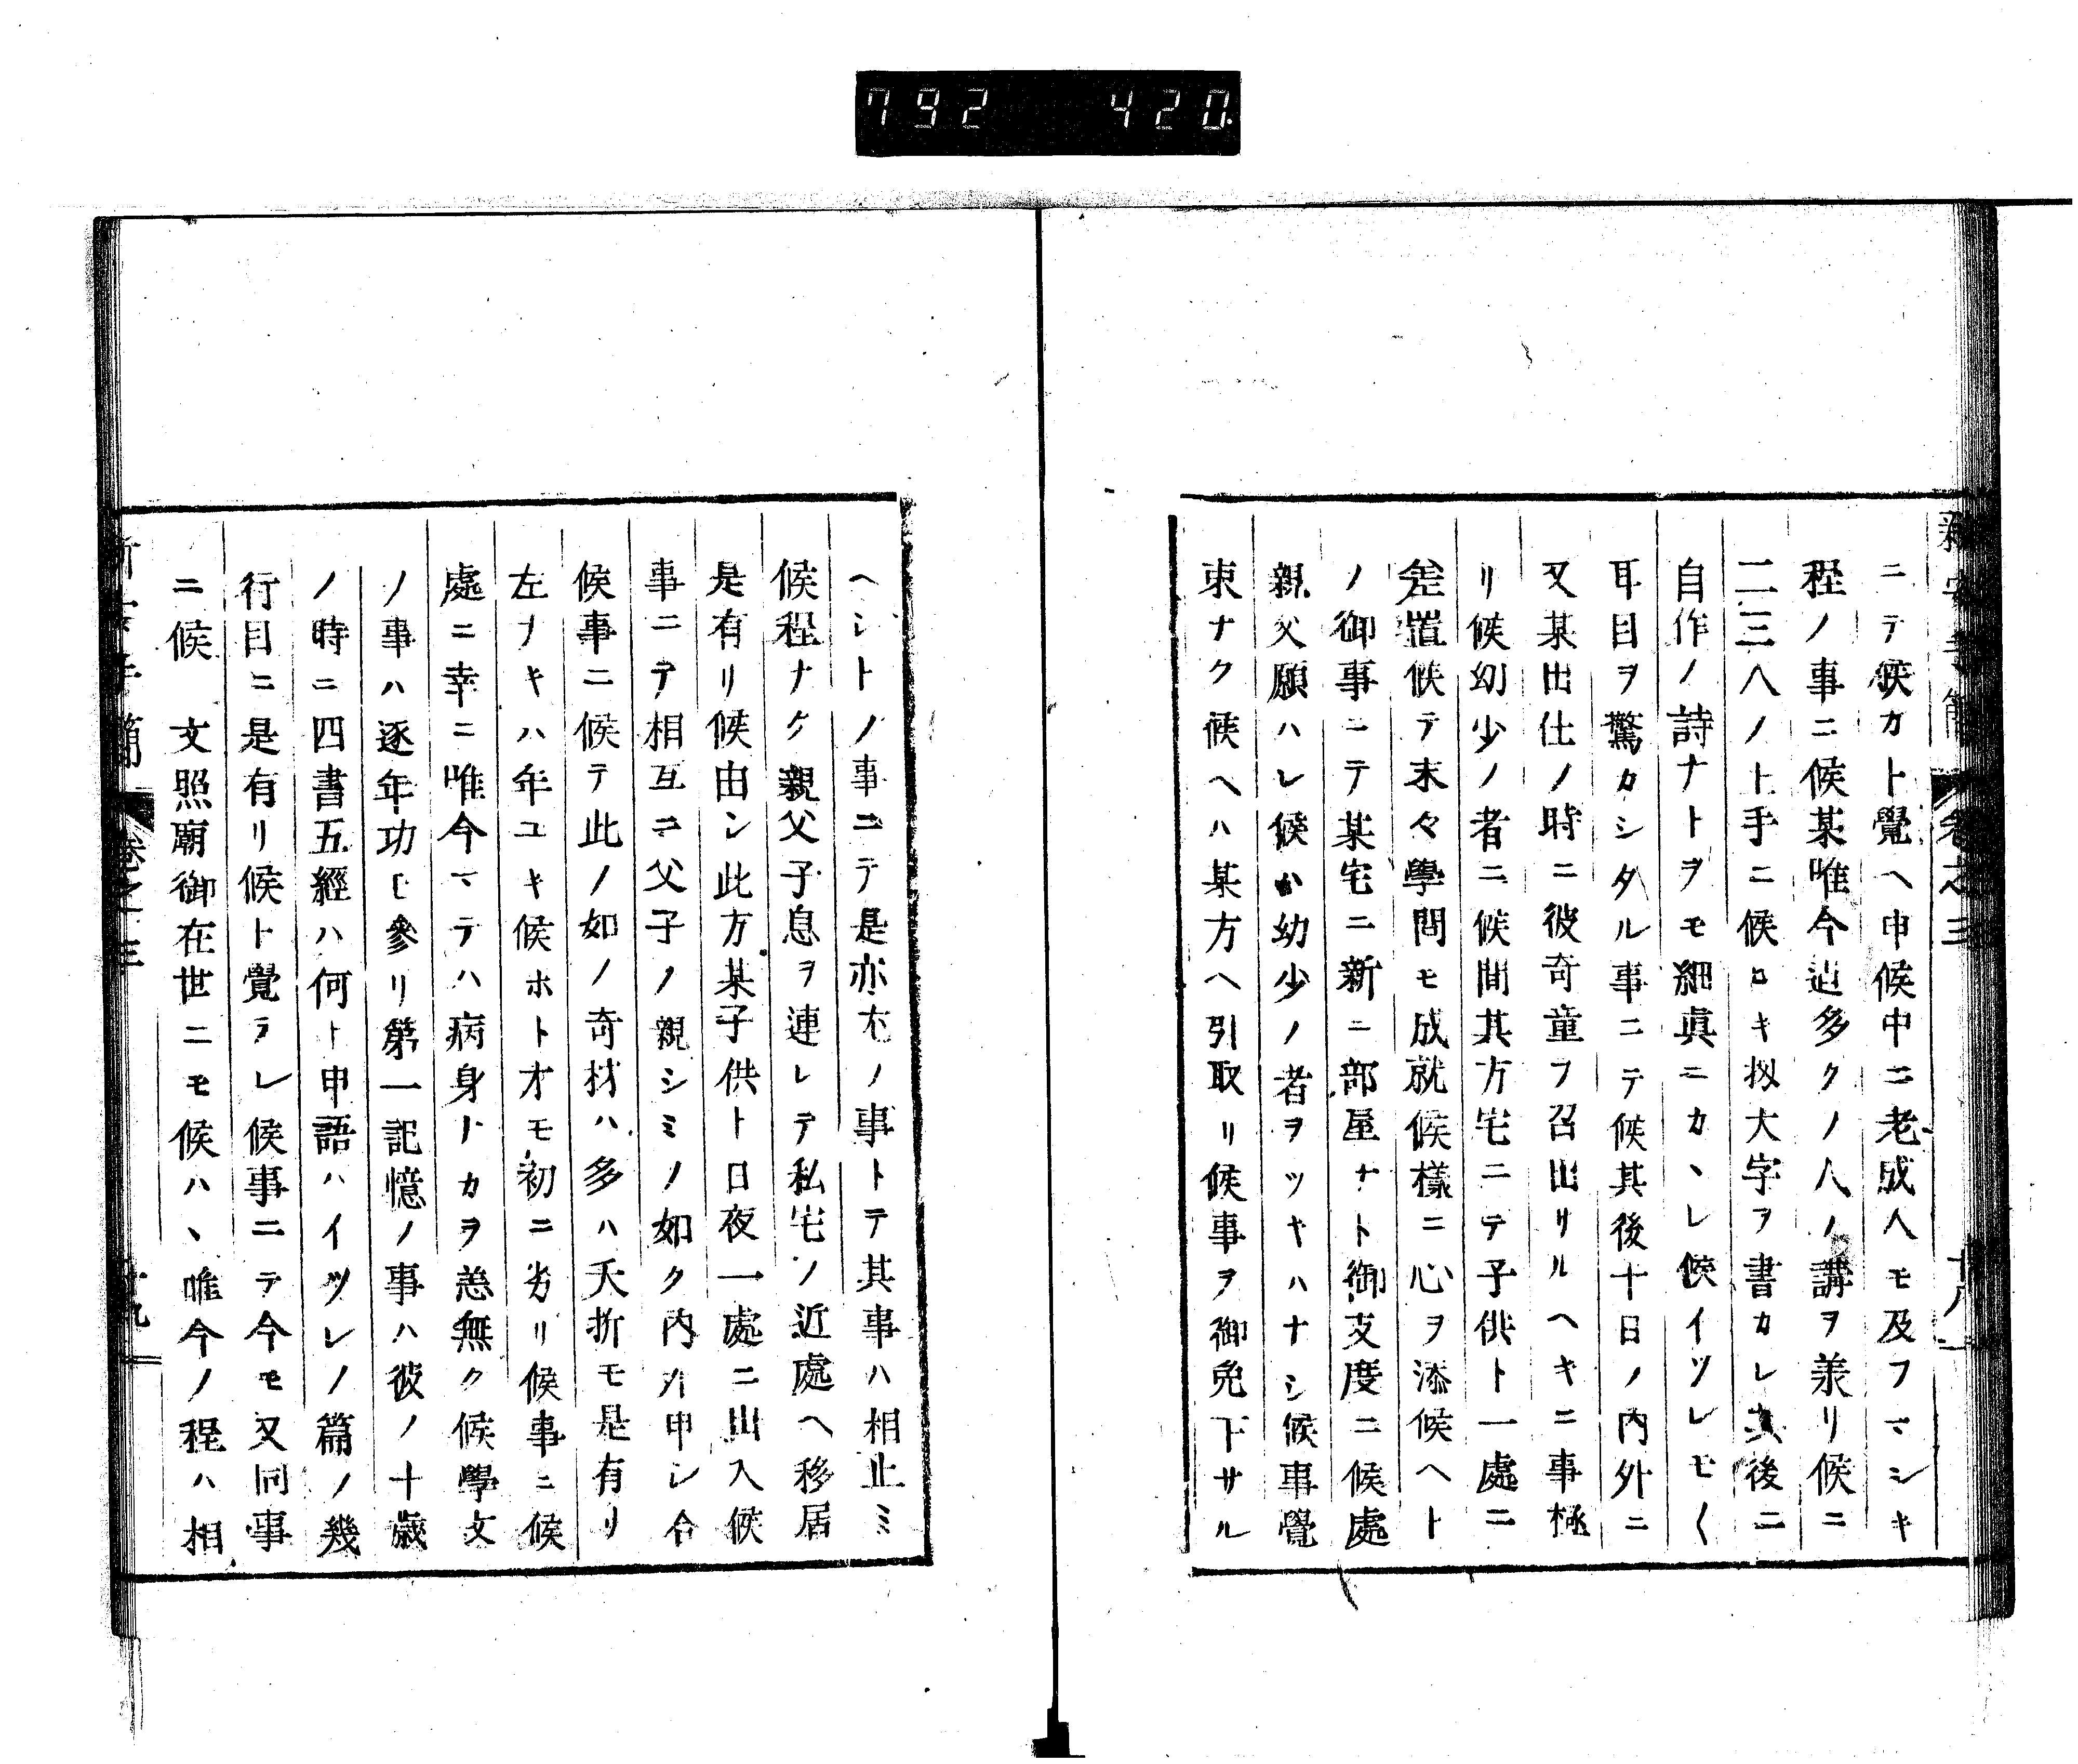 792 420
新安手簡 卷之三 十八
ニテ候カト覺ヘ申候中ニ老成人モ及フマシキ
程ノ事ニ候某唯今迠多クノ人ノ講ヲ羕リ候ニ
二三人ノ上手ニ候ロキ扨大字ヲ書カレ其後ニ
自作ノ詩ナトヲモ細眞ニカヽレ候イツレモ〱
耳目ヲ驚カシタル事ニテ候其後十日ノ內外ニ
又某出仕ノ時ニ彼奇童ヲ召出サルヘキニ事極
リ候幼少ノ者ニ候間其方宅ニテ子供ト一處ニ
差置候テ末々學問モ成就候樣ニ心ヲ添候ヘト
ノ御事ニテ某宅ニ新ニ部屋ナト御支度ニ候處
親父願ハレ候ハ幼少ノ者ヲツキハナシ候事覺
束ナク候ヘハ某方ヘ引取リ候事ヲ御免下サル
ヘシトノ事ニテ是亦尤ノ事トテ其事ハ相止ミ
候程ナク親父子息ヲ連レテ私宅ノ近處ヘ移居
是有リ候由ン此方某子供ト日夜一處ニ出入候
事ニテ相互ニ父子ノ親シミノ如ク內外申シ合
候事ニ候テ此ノ如ノ奇材ハ多ハ夭折モ是有リ
左ナキハ年ユキ候ホト才モ初ニ劣リ候事ニ候
處ニ幸ニ唯今マテハ病身ナカヲ恙無ク候學文
ノ事ハ逐年功モ參リ第一記憶ノ事ハ彼ノ十歲
ノ時ニ四書五經ハ何ト申語ハイツレノ篇ノ幾
行目ニ是有リ候ト覺ヲレ候事ニテ今モ又同事
ニ候 文照廟御在世ニモ候ハヽ唯今ノ程ハ相
新安手簡 卷之三 十九